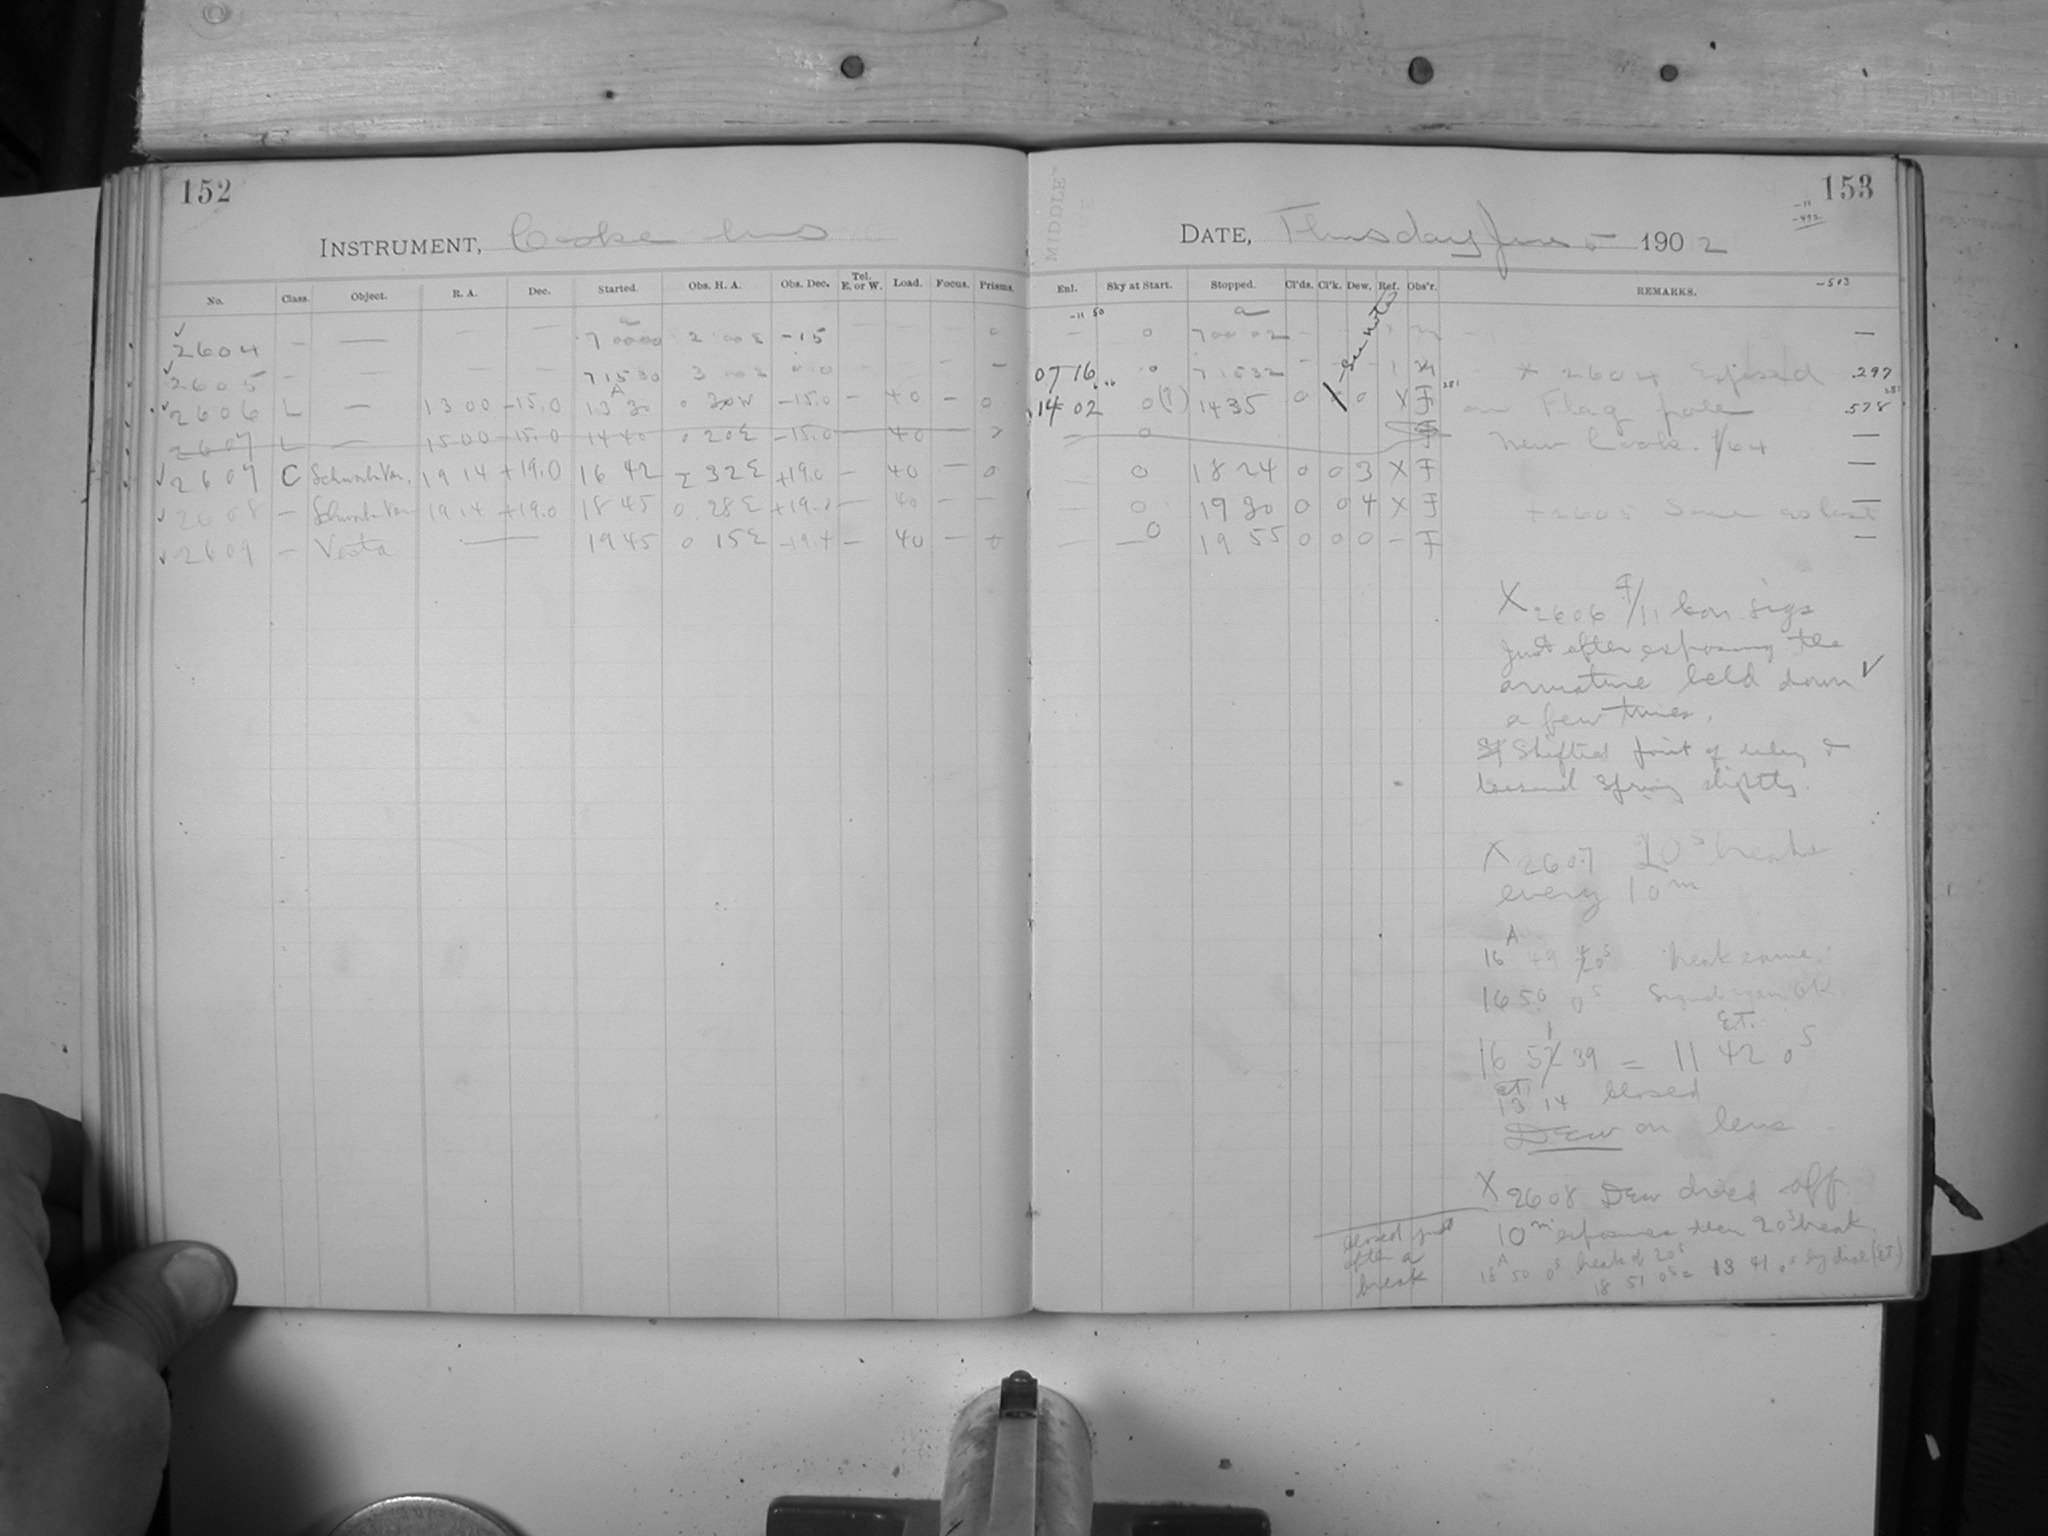 152
INSTRUMENT, Cooke lens
No. Class. Object. R. A. Dec. Started. Obs. H. A. Obs. Dec. Tel. E. or W. Load. Focus. Prisms.
2604 — — — — 7 00 00 2 00 E -15 — — — 0
2605 — — — — 7 15 30 3 00 E 0.0 — — — —
2606 L — 13 00 -15.0 13 30 0 30 W -15.0 — 40 — 0
2607 L — 15 00 -15.0 14 40 0 20 E -15.0 — 40 —
2607 C 19 14 +19.0 16 42 2 32 E +19.0 — 40 — 0
2608 — 19 14 +19.0 18 45 0 28 E +19.0 — 40 — —
2609 — Vesta — 19 45 0 15 E — 40 —
MIDDLE
153
-11
-492
DATE, Thursday June 5 1902
Enl. Sky at Start. Stopped. Cl'ds. Cl'k. Dew. Ref. Obs'r. REMARKS.
-503
-11 50
— 0 7 00 02 — —
See note
07 16 0 7 15 32 — — — 1 .297
14 02 0(?) 14 35 0 0 X F .578
— 0 F —
— 0 18 24 0 0 3 X F —
— 0 19 30 0 0 4 X F —
— 0 19 55 0 0 0 — F —
X 2604 Exposed
on Flag pole
New Cook. 1/64
X 2605 Same as last
X 2606
Just after exposing the
armature held down
a few times.
Shifted point of relay &
loosened spring slightly.
X 2607 20s breaks
every 10m
16 49 20s break came
16 50 0s Signals again OK.
E.T.
16 51 39 = 11 42 0s
E.T.
13 14 closed
Dew on lens
X 2608 Dew dried off.
10m exposures then 20s break
18 50 0s break of 20s
18 51 0s = 13 41 0s by dial (E.T.)
closed just
after a
break